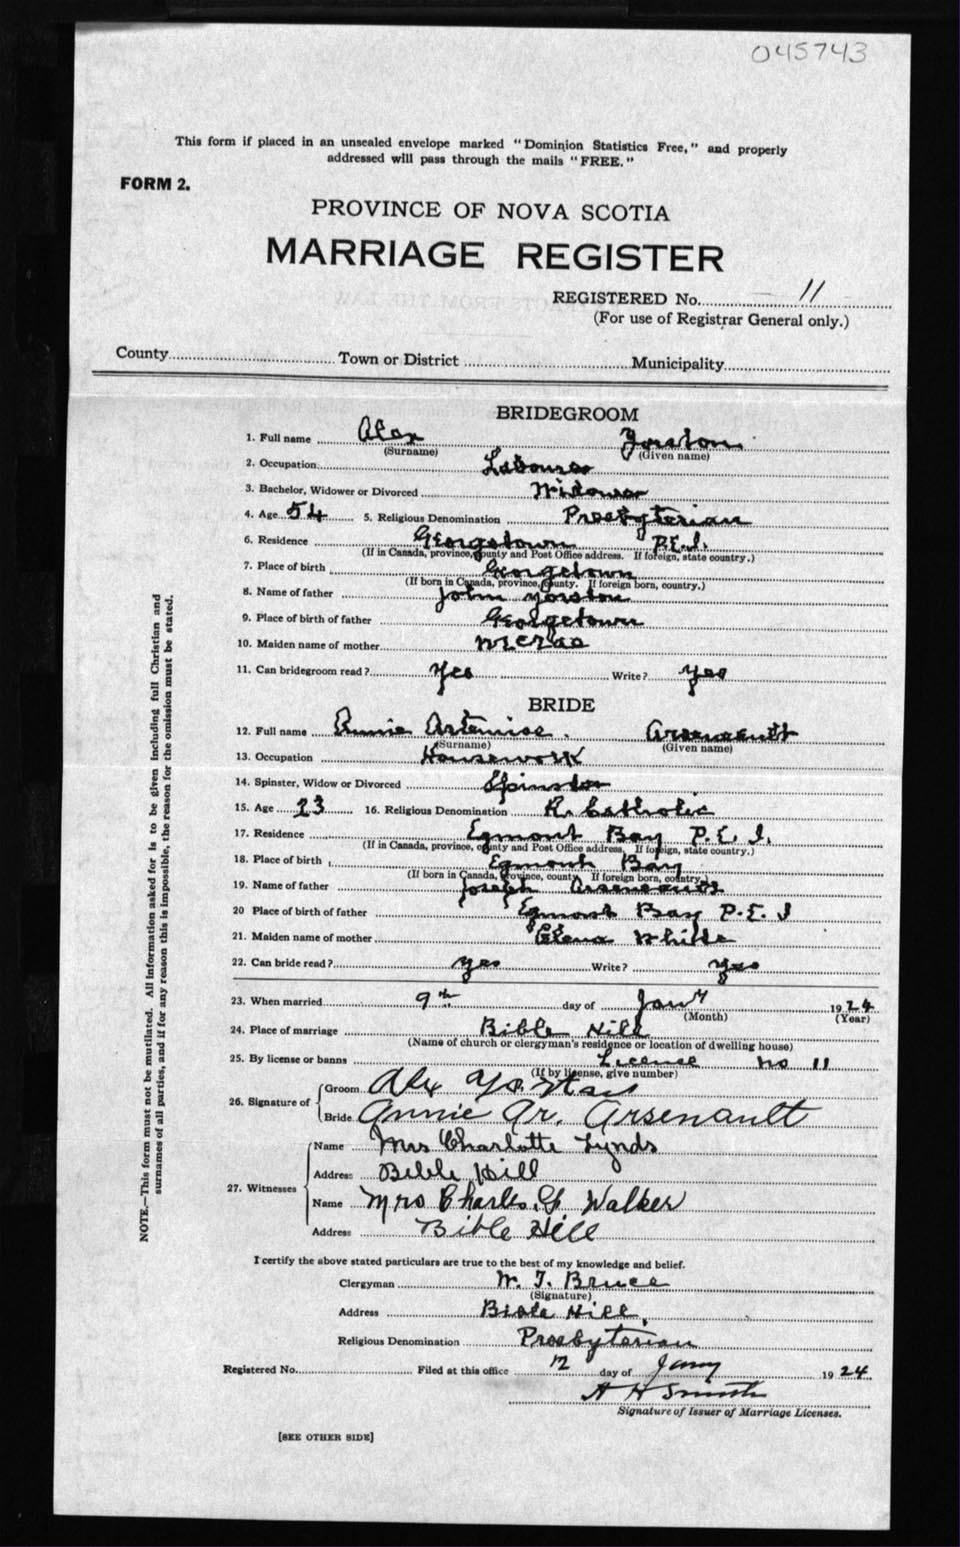 045743
This form if placed in an unsealed envelope marked "Dominion Statistics Free," and properly
addressed will pass through the mails "FREE."
FORM 2.
PROVINCE OF NOVA SCOTIA
MARRIAGE REGISTER
REGISTERED No. 11
(For use of Registrar General only.)
County Town or District Municipality
BRIDEGROOM
1. Full name Alex Yorston
(Surname) (Given name)
2. Occupation Labourer
3. Bachelor, Widower or Divorced Widower
4. Age 54 5. Religious Denomination Presbyterian
6. Residence Georgetown P.E.I.
(If in Canada, province, county and Post Office address. If foreign, state country.)
7. Place of birth Georgetown
(If born in Canada, province, county. If foreign born, country.)
8. Name of father John Yorston
9. Place of birth of father Georgetown
10. Maiden name of mother McRae
11. Can bridegroom read? Yes Write? yes
BRIDE
12. Full name Annie Artemise Arseneault
(Surname) (Given name)
13. Occupation Housework
14. Spinster, Widow or Divorced Spinster
15. Age 23 16. Religious Denomination R. Catholic
17. Residence Egmont Bay P.E.I.
(If in Canada, province, county and Post Office address. If foreign, state country.)
18. Place of birth Egmont Bay
(If born in Canada, province, county. If foreign born, country.)
19. Name of father Joseph Arseneault
20 Place of birth of father Egmont Bay P.E.I
21. Maiden name of mother Elena White
22. Can bride read? yes Write? yes
23. When married 9th day of Jany 1924
(Month) (Year)
24. Place of marriage Bible Hill
(Name of church or clergyman's residence or location of dwelling house)
25. By license or banns Licence no 11
(If by license, give number)
26. Signature of Groom Alex
Bride Annie Ar. Arsenault
27. Witnesses Name Mrs Charlotte Lynds
Address Bible Hill
Name Mrs Charles G. Walker
Address Bible Hill
I certify the above stated particulars are true to the best of my knowledge and belief.
Clergyman W. T. Bruce
(Signature)
Address Bible Hill
Religious Denomination Presbyterian
Registered No. Filed at this office 12 day of Jany 1924
A H Smith
Signature of Issuer of Marriage Licenses.
[SEE OTHER SIDE]
NOTE.—This form must not be mutilated. All information asked for is to be given including full Christian and
surnames of all parties, and if for any reason this is impossible, the reason for the omission must be stated.